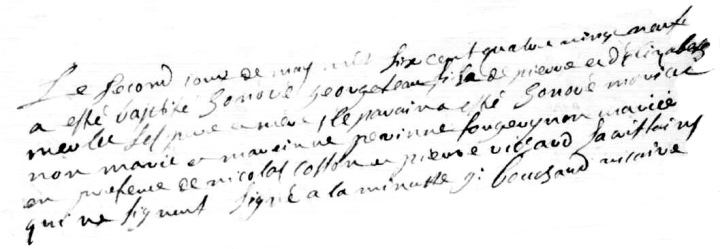 Le second jour de may mil six cent quatre vingt neufe
a esté baptisé honoré georgeteau fils de pierre et d'Elizabeth
merlet ses pere et mere, le parain a esté honoré moriac
non marié et mareinne perinne fougeu non mariée
en presence de nicolas cotton et pierre ricard sacristains
qui ne signent signé a la minutte j: bouchaud vicaire